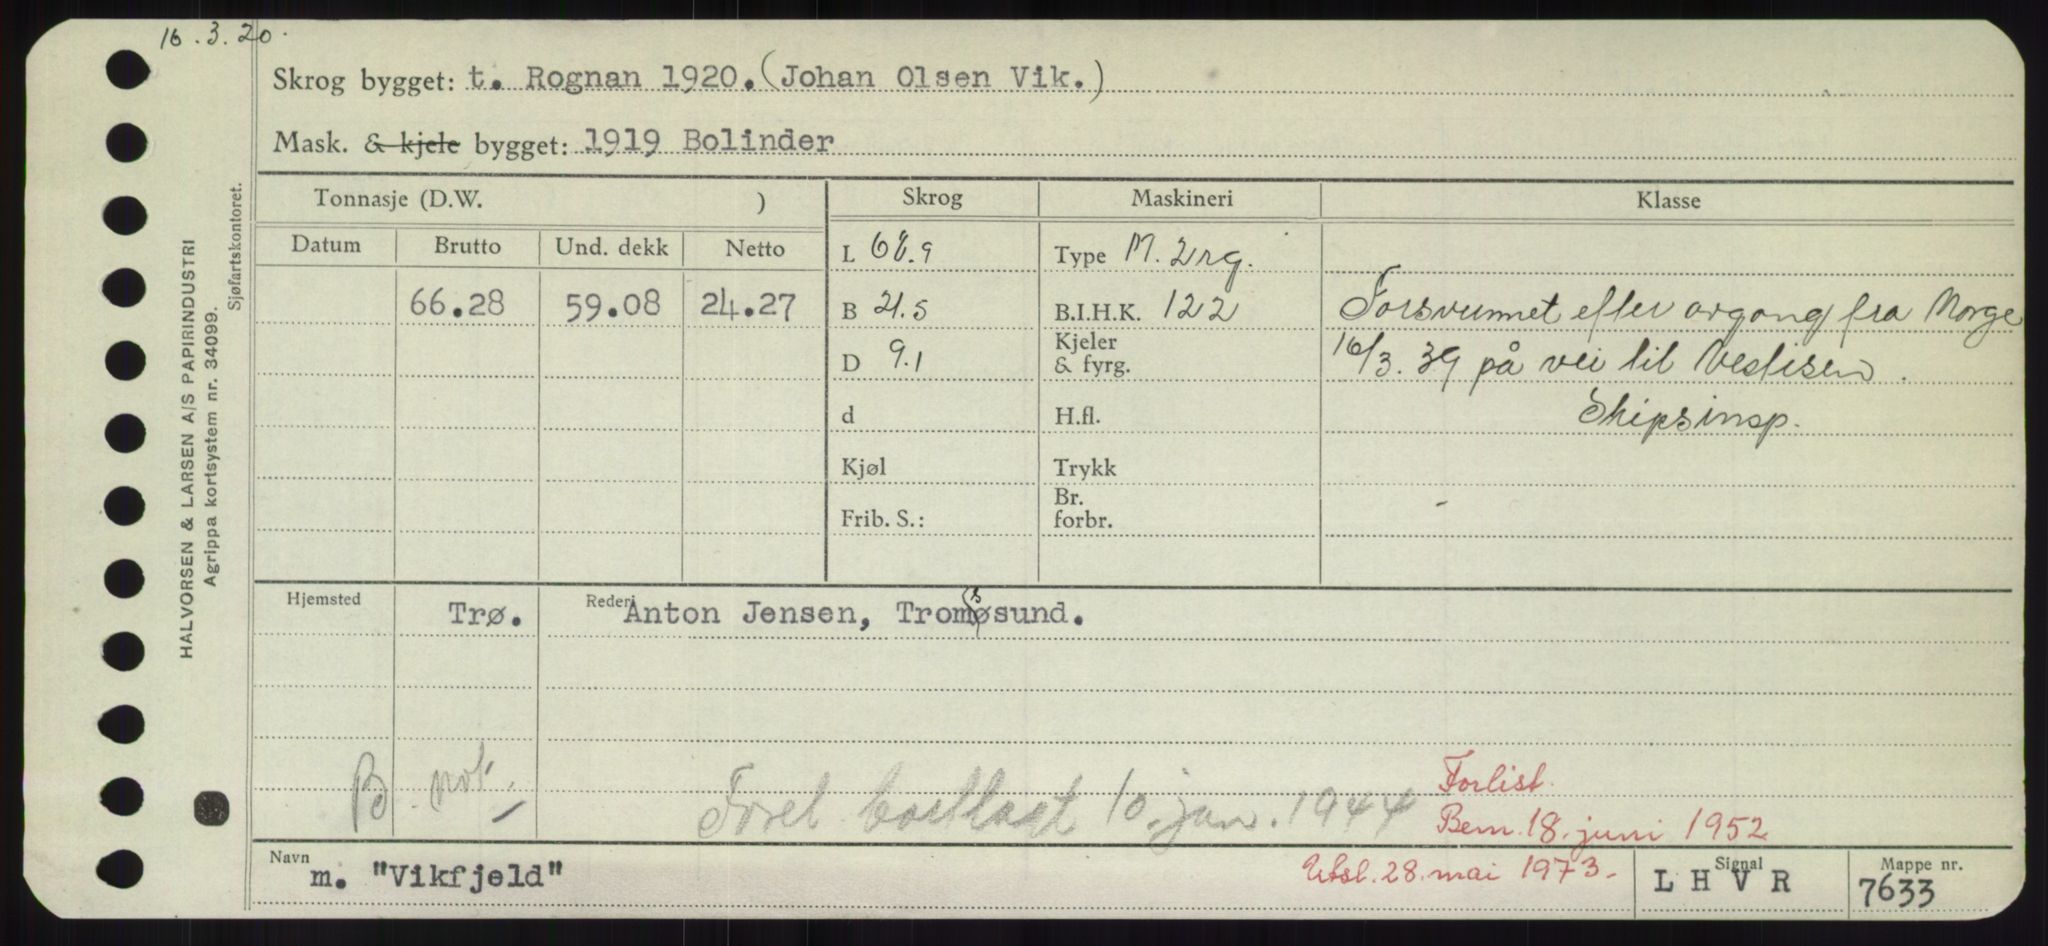 16.3.20.
Skrog bygget: t. Rognan 1920. (Johan Olsen Vik.)
Mask. & kjele bygget: 1919 Bolinder
Tonnasje (D.W. )
Skrog
Maskineri
Klasse
Datum Brutto Und. dekk Netto
66.28 59.08 24.27
L 68.9
B 21.5
D 9.1
d
Kjøl
Frib. S.:
Type M. 2 
B.I.H.K. 122
Kjeler
& fyrg.
H.fl.
Trykk
Br.
forbr.
Forsvunnet efter avgang fra Norge
16/3. 39 på vei til Vestisen.
Skipsinsp.
Hjemsted Trø. Rederi Anton Jensen, Tromsøsund.
B. not.
bortlagt 10. jan. 1944
Forlist.
Bem. 18. juni 1952
Utsl. 28. mai 1973.
Navn m. "Vikfjeld"
Signal LHVR
Mappe nr. 7633
HALVORSEN & LARSEN A/S PAPIRINDUSTRI
Agrippa kortsystem nr. 34099.
Sjøfartskontoret.